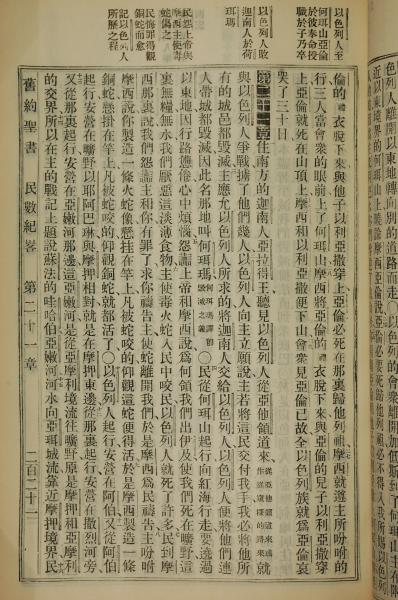 列人離開以東地轉向別的道路而走○以色列的會眾離開加低斯到了何珥山主在附
近以東境界的何珥山上曉諭摩西亞倫說亞倫必要死歸他列祖必不得入我所賜以色列
以色列人至
亞倫
於彼奉命授
職於子乃卒
以色列人敗
迦南人於荷
珥瑪
民怨上帝與
摩西主使毒
蛇傷之
民悔罪得觀
銅蛇而愈
記以色列人
所歷之程
倫的禮衣脫下來與他子以利亞撒穿上亞倫必死在那裏歸他列祖摩西就遵主所吩咐的
行三人當會眾的眼前上了何珥山摩西將亞倫的禮衣脫下來與亞倫的兒子以利亞撒穿
上亞倫就死在山頂上摩西和以利亞撒便下山會眾見亞倫已故全以色列族就爲亞倫哀
哭了三十日
第二十一章住南方的迦南人亞拉得王聽見以色列人從亞他領道來從亞他領道來或作從窺探的路來就
與以色列人爭戰擄了他們幾人以色列人向主立願說主若將這民交付我手我必將他所
有的城邑都毀滅主應允以色列人所求的將迦南人交給以色列人以色列人便將他們連
人帶城都毀滅因此名那地叫何珥瑪何珥瑪譯卽毀滅之義○民從何珥山起行向紅海行走要遶過
以東地因行路憊倦心中煩惱怨讟上帝和摩西說爲何領我們出伊及使我們死在曠野這
裏無糧無水我們厭惡這淡薄食物主使毒火蛇入民中咬民以色列人就死了許多民到摩
西那裏說我們怨讟主和你有罪了求你禱告主使蛇離開我們於是摩西爲民禱告主吩咐
摩西說你製造一條火蛇像懸挂在竿上凡被蛇咬的仰觀這蛇便得活於是摩西製造一條
銅蛇懸掛在竿上凡被蛇咬的仰觀銅蛇就都活了○以色列人起行安營在阿伯又從阿伯
起行安營在曠野以耶阿巴琳與摩押相對就是在摩押東邊從那裏起行安營在撒烈河旁
又從那裏起行安營在亞嫩河那邊這亞嫩河是從亞摩利境流往曠野原是摩押和亞摩利
的交界所以在主的戰記上題說蘇法的哇哈伯亞嫩河河水向亞珥城流靠近摩押境界民
舊約聖書
民數紀畧
第二十一章
二百二十一